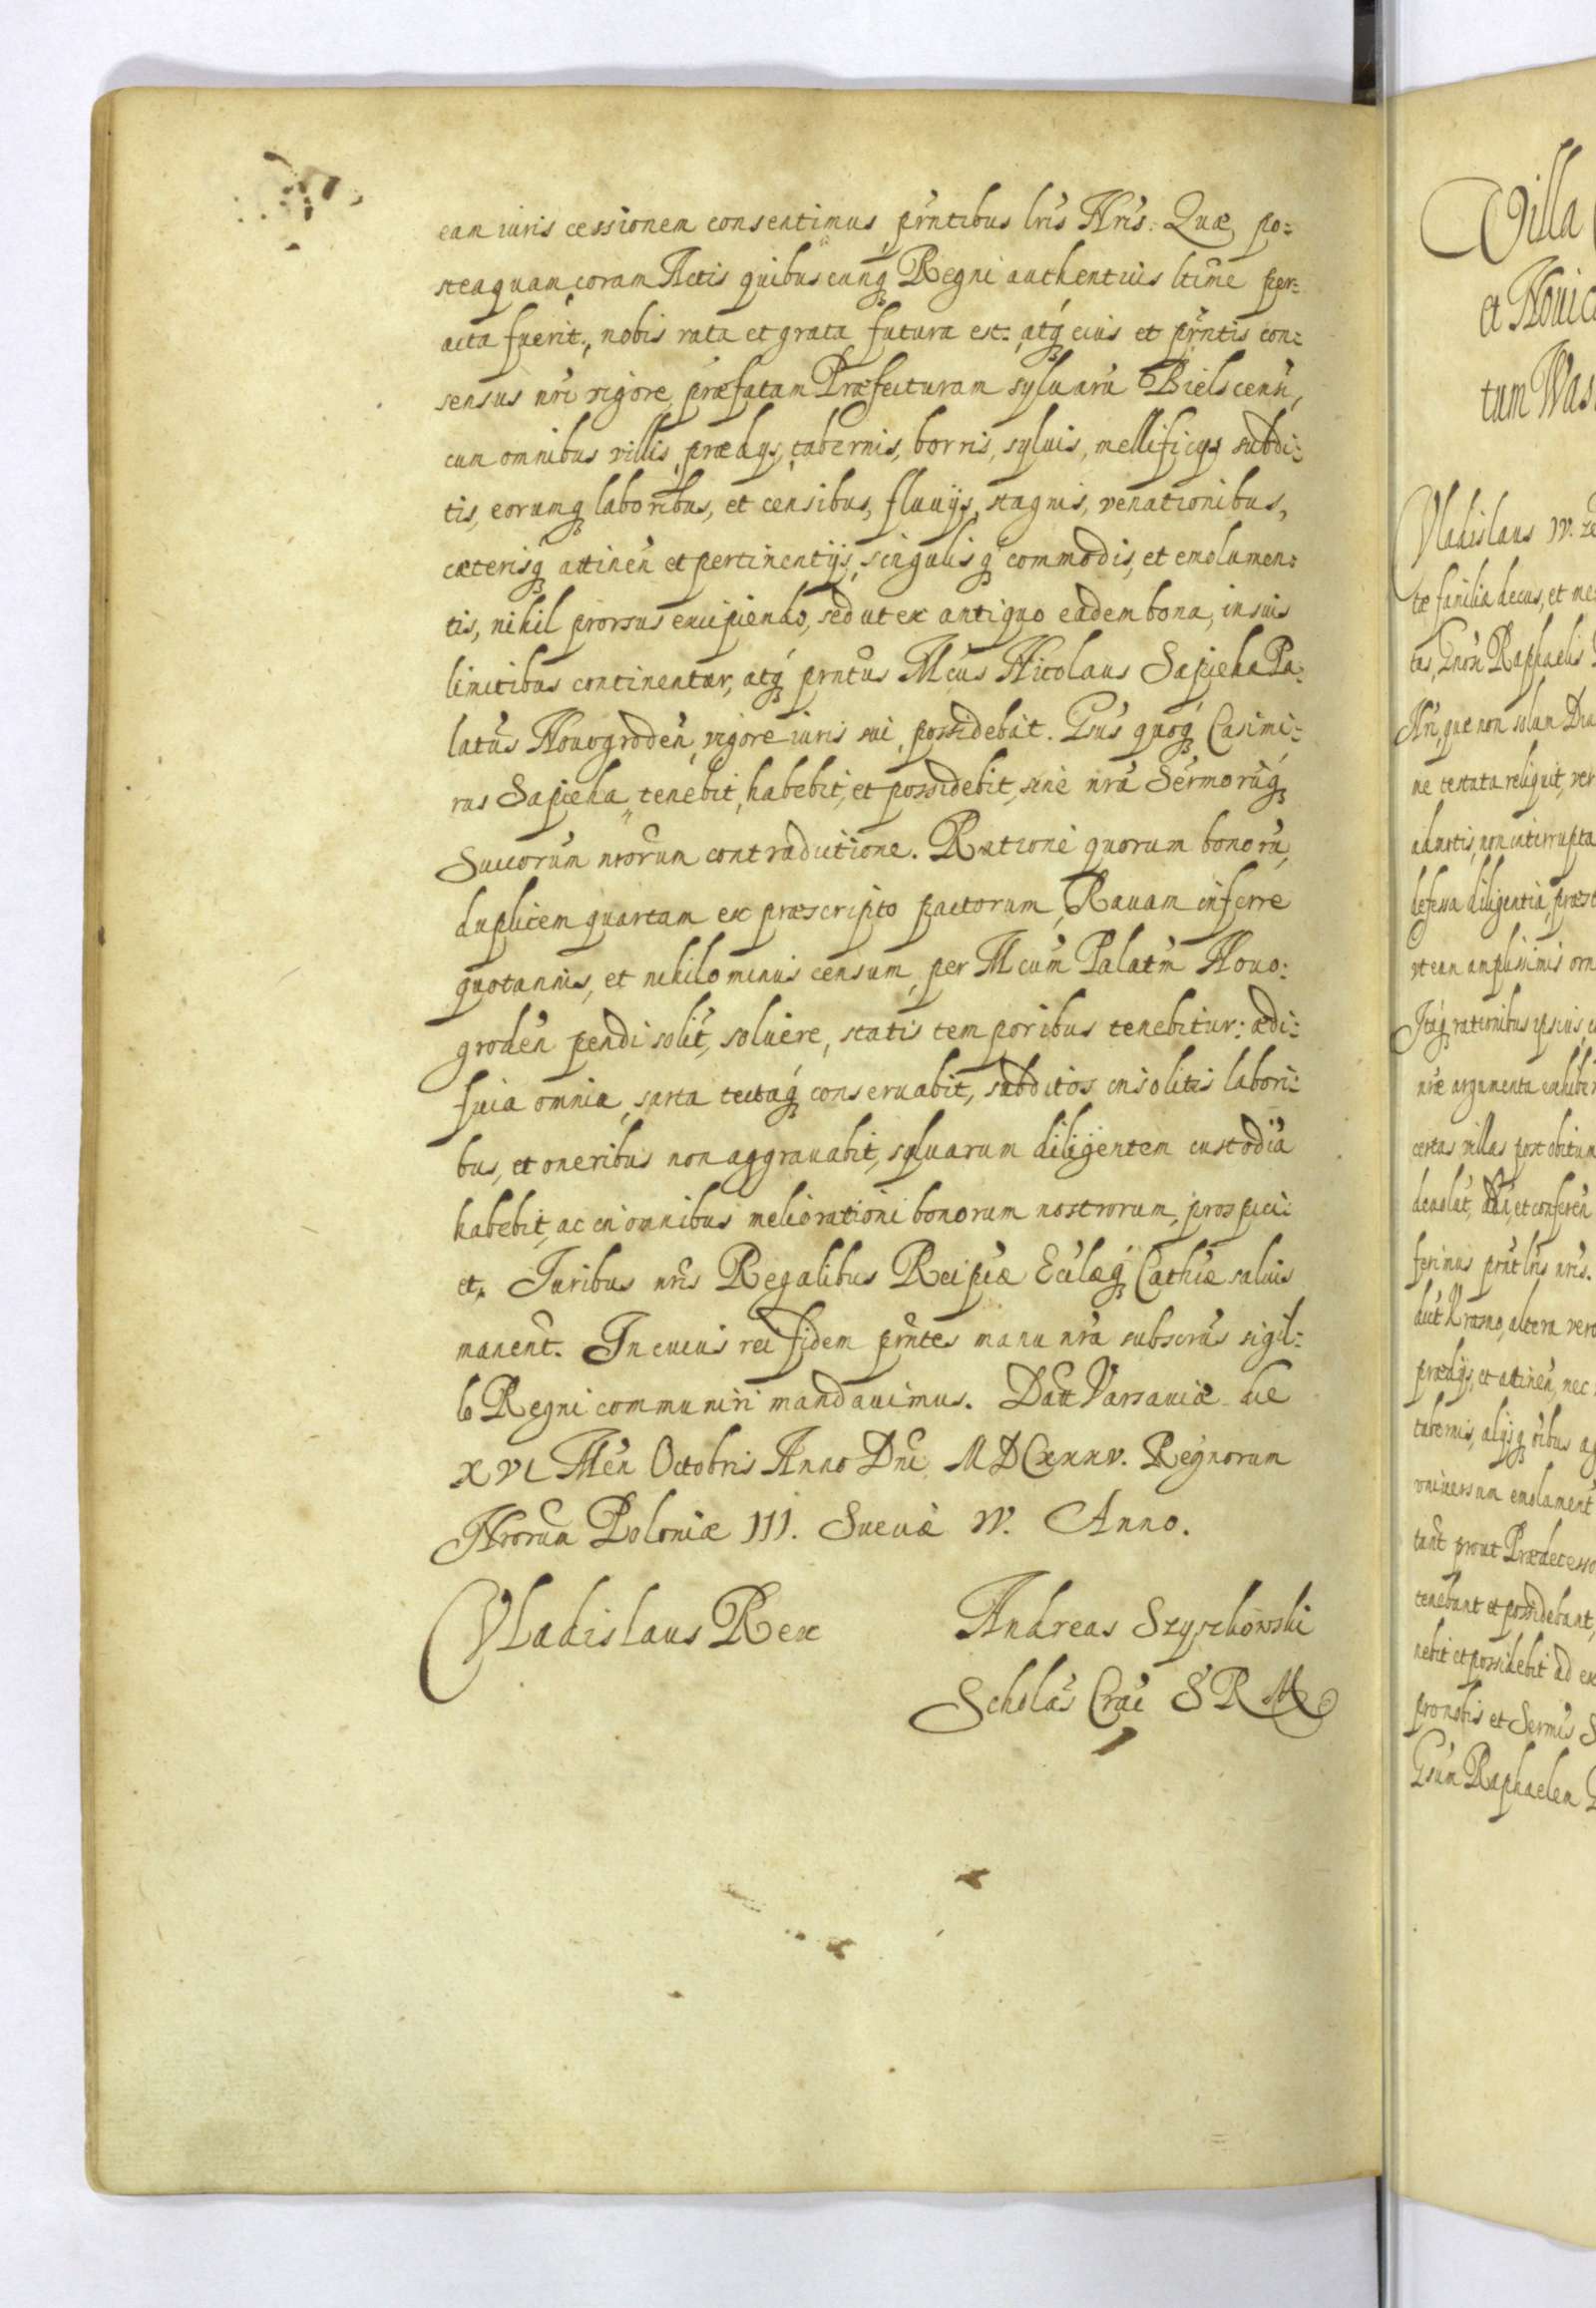 eam iuris cessionem consentimus, pr̃ntibus lrĩs Nrĩs. Quæ po:
steaquam, coram Actis quibuscunq Regni authenticis ltĩme per:
acta fuerit, nobis rata et grata futura est: atq́ eius et pr̃ntis con:
sensus nrĩ vigore, præfatam Præfecturam syluarũ Bielscenß,
cum omnibus villis, prædijs, tabernis, borris, syluis, mellificijs subdi:
tis, eorumq laboribus, et censibus, fluuijs, stagnis, venationibus,
cæterisq attinen̄ et pertinentijs, singulisq commodis, et emolumen:
tis, nihil prorsus excipiendo, sed ut ex antiquo eadem bona, in suis
limitibus continentur, atq́ prñtũs Mcũs Nicolaus Sapieha Pa:
latũs Nouogroden̄, vigore iuris sui, possidebat. Gsũs quoq́ Casimi:
rus Sapieha, tenebit, habebit, et possidebit, sine nrã Serm̃orũq
Succorũm nrõrum contradictione. Ratione quorum bonorũ,
duplicem quartam ex præscripto pactorum, Rauam inferre
quotannis, et nihilominus censum, per Mcũm Palatm̃ Nouo:
groden̄ pendi solit̃, soluere, statis temporibus tenebitur: ædi:
ficia omnia, sarta tectaq́ conseruabit, subditos insolitis labori:
bus, et oneribus non aggrauabit, syluarum diligentem custodiã
habebit, ac in omnibus meliorationi bonorum nostrorum, prospici:
et. Iuribus nrĩs Regalibus Reipcæ̃ Ecclæq́ Cathcæ̃ saluis
manent̃. In cuius rei fidem prñtes manu nrã subscrũs sigil:
lo Regni communiri mandauimus. Datt Varsauiæ die
XVI Men̄ Octobris Anno Dnĩ MDCXXXV. Regnorum
Nrorũm Poloniæ III. Sueciæ IV. Anno.
Vladislaus Rex
Andreas Szyszkowski
Scholãs Crac̃ S R M
Villa
et Nouic
tum Was
Vladislaus IV.
tæ familiæ decus, et me
tas, Gnõr Raphaelis
Nrĩ, quæ non solum Diu
ne testata reliquit, ver
aduotis, non interrupta
defessa diligentia, præst
vt eam amplissimis orn
Itaq rationibus ipsius,
nræ̃ argumenta exhiber
certas villas post obitum
deuolut̃, dãri, et conferen̄
ferimus prñt lrĩs nrĩs.
dict̃ Krasno, altera vero
prædijs, et attinen̄, nec
tabernis, alijsq
vniuersum emolument̃
tant̃ prout Prædecesso
tenebant et possidebant,
nebit et possidebit ad ex
pro nobis et Sermĩs S
Gsũm Raphaelem